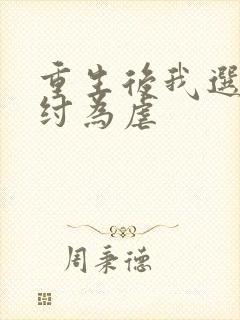 重生後我選
紂為虐
周秉德